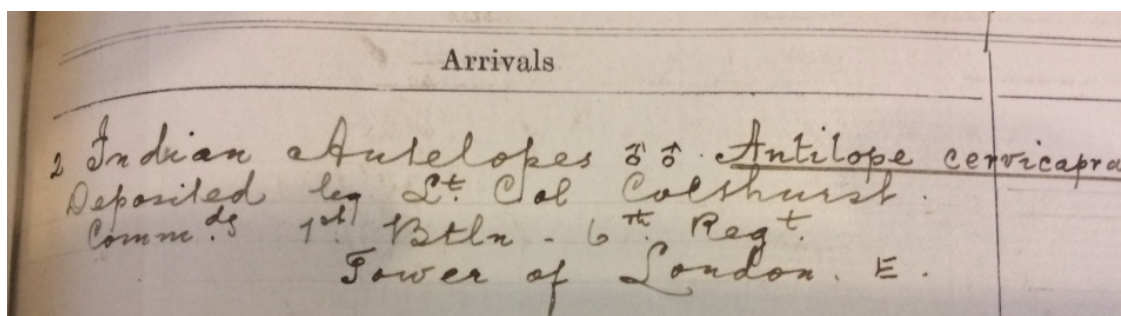 Arrivals
2 Indian Antelopes ♂♂. Antilope cervicapra
Deposited by Lt. Col Colthurst.
Comm.ds 1st Btln - 6th Regt.
Tower of London. E.